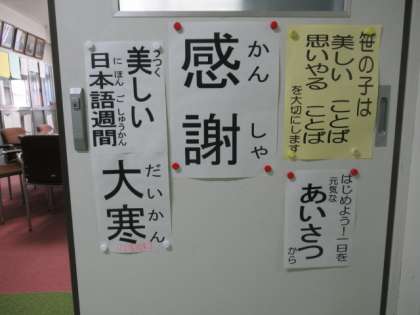 笹の子は
美しい ことば
思いやる ことば
を大切にします
はじめよう！一日を
元気な
あいさつ
から
感謝
かん しゃ
美しい
うつく
日本語週間
に ほん ご しゅうかん
大寒
だいかん